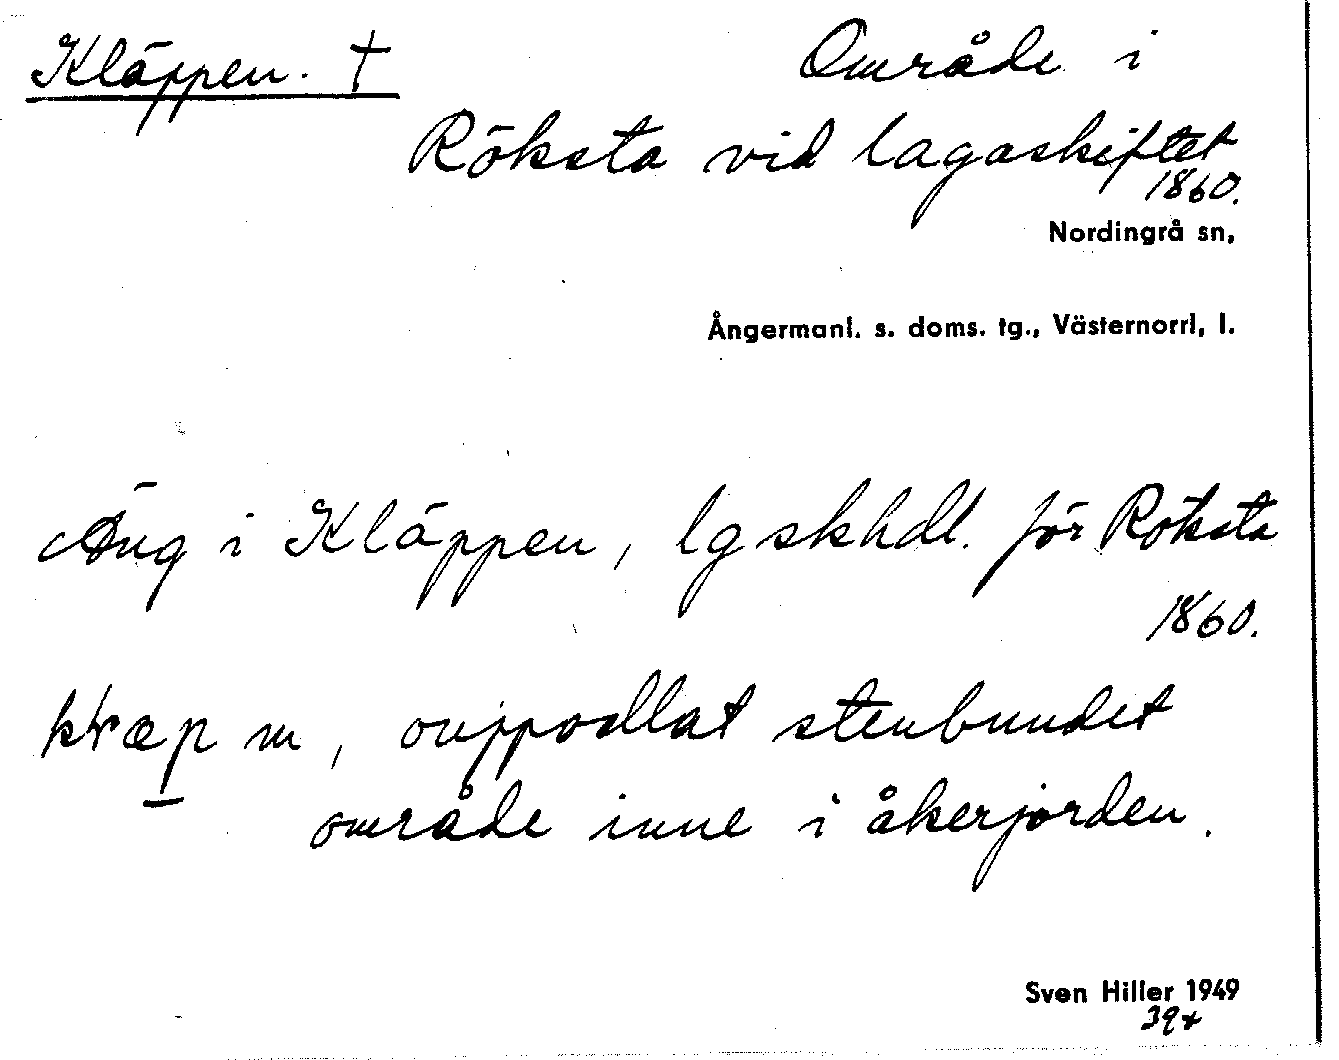 Kläppen. † Område i
Röksta vid lagaskiftet
1860.
Nordingrå sn,
Ångermanl. s. doms. tg., Västernorrl. l.
Äng i Kläppen, lgskhdl. för Röksta
1860.
m, ouppodlat stenbundet
område inne i åkerjorden.
Sven Hiller 1949